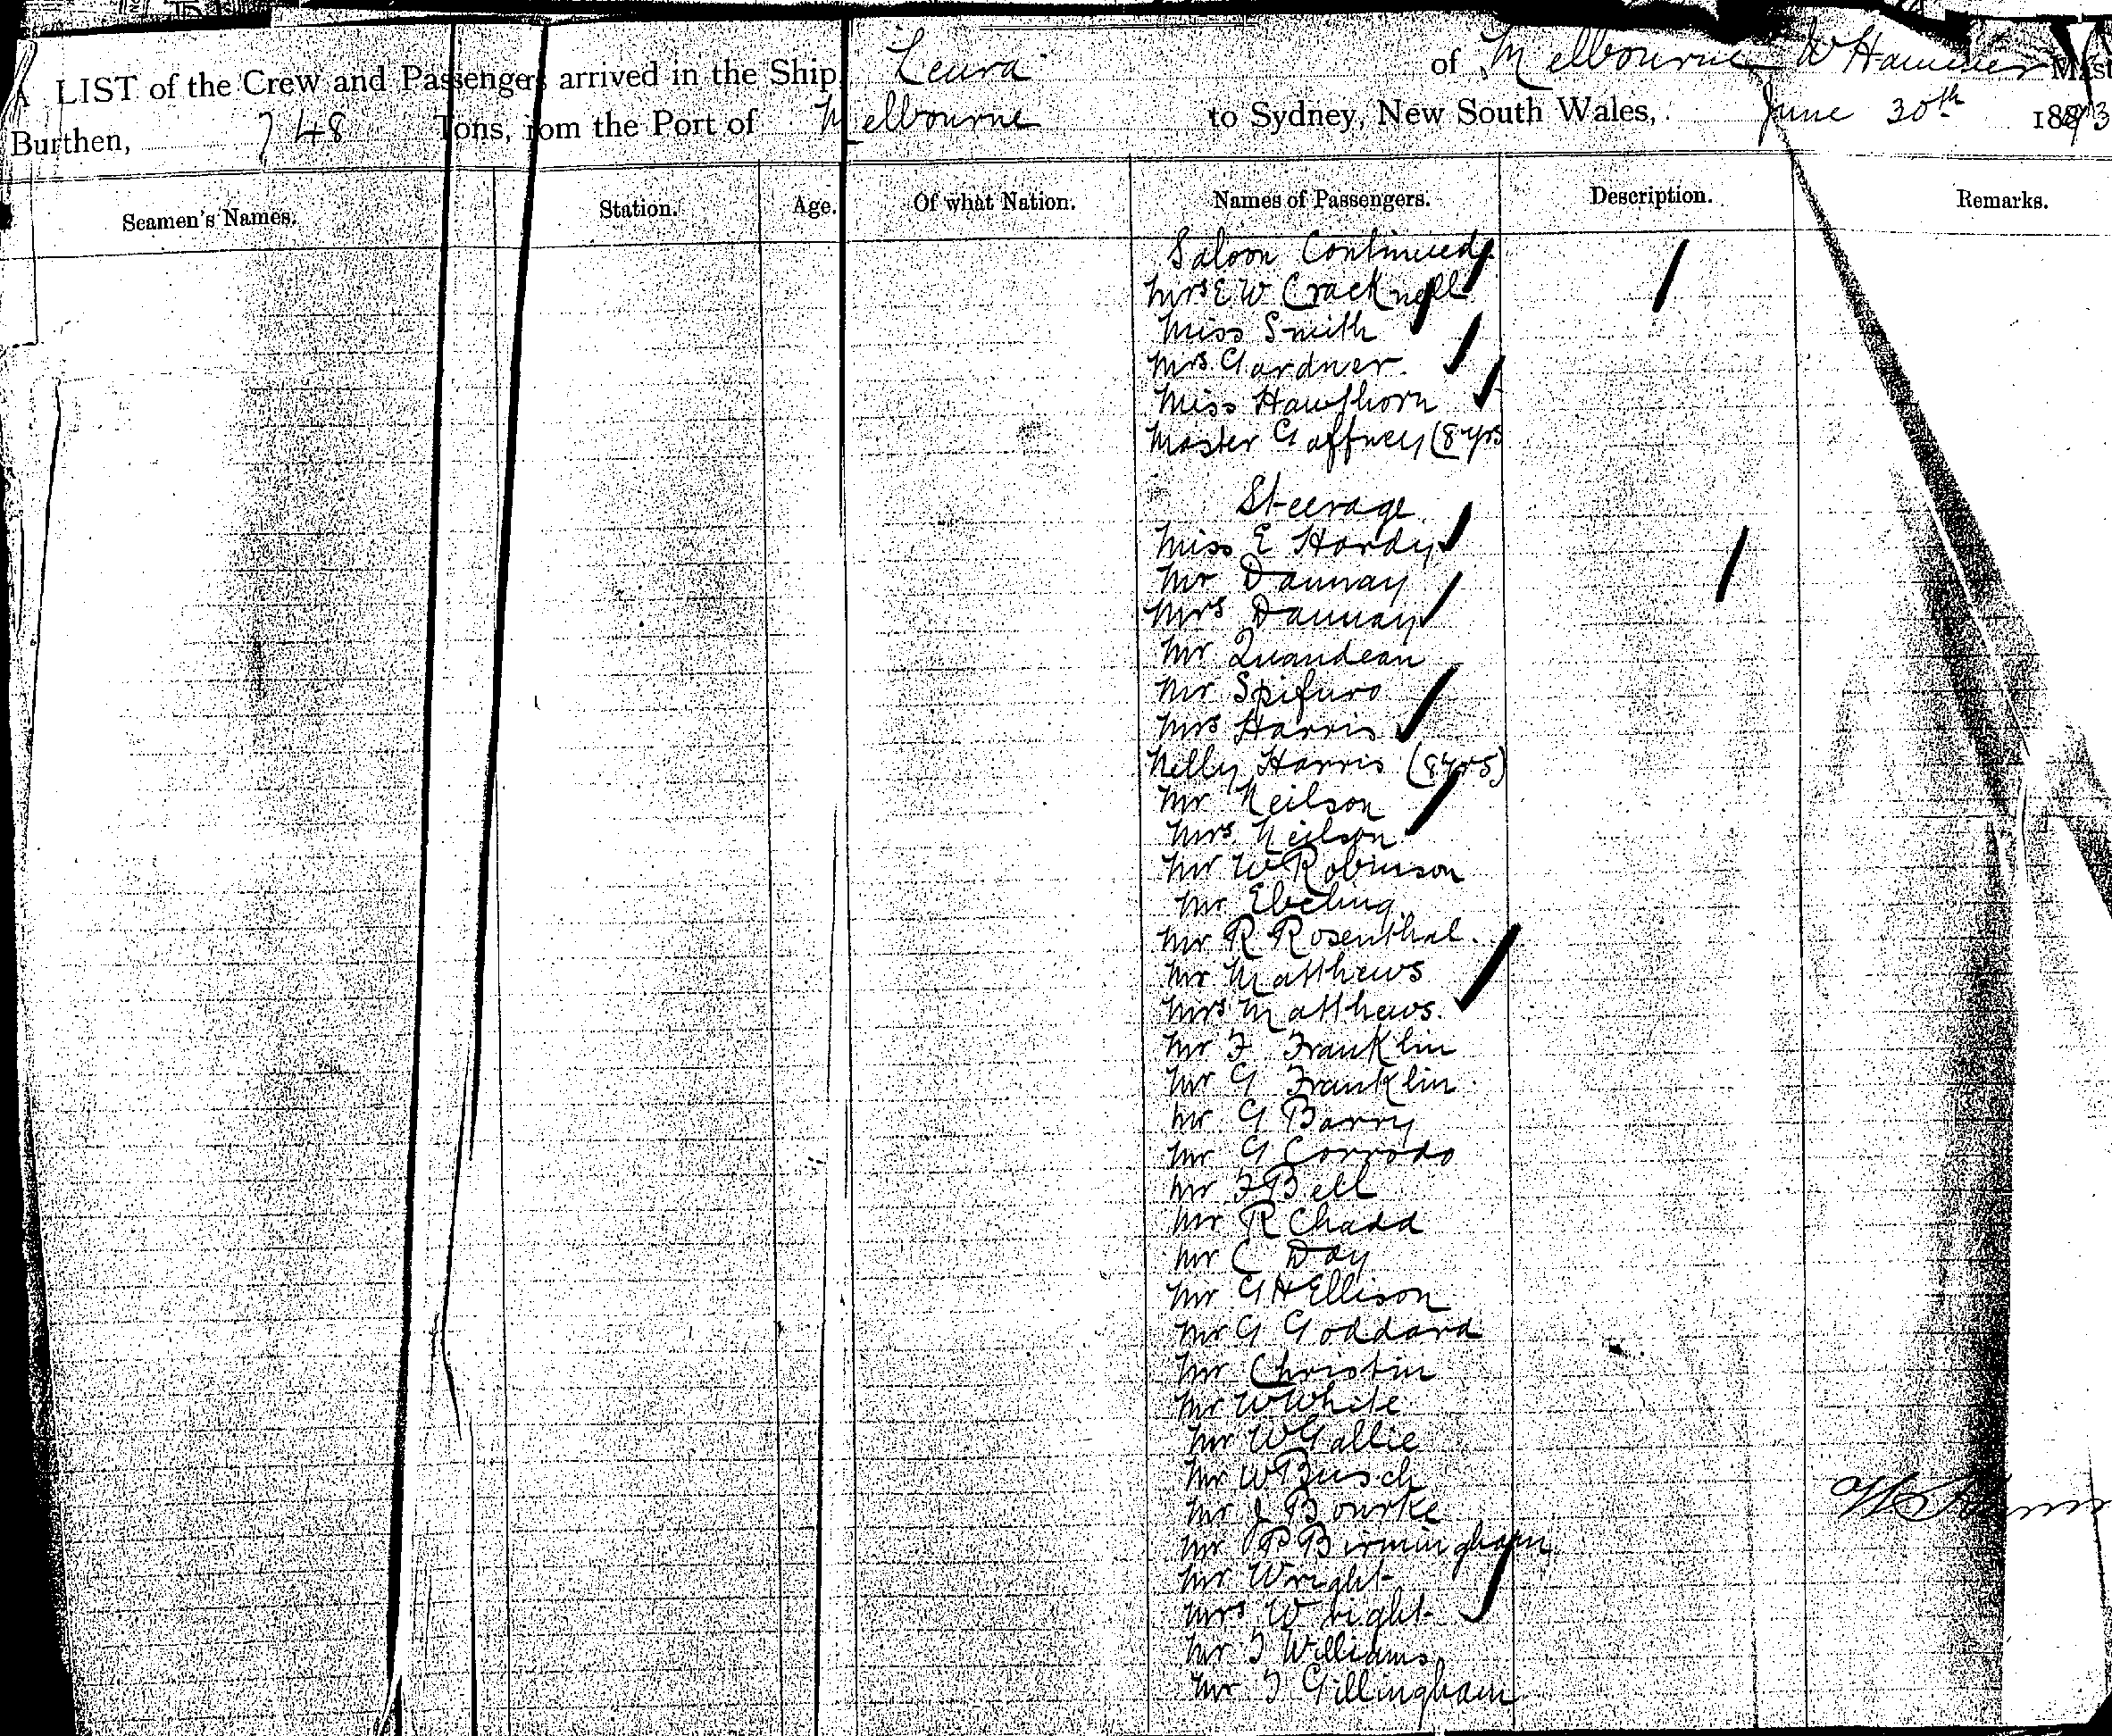 A LIST of the Crew and Passengers arrived in the Ship, Leura of Melbourne W Hammer Mast
Burthen, 748 Tons, from the Port of Melbourne to Sydney, New South Wales, June 30th 1893
Seamen's Names. Station. Age. Of what Nation. Names of Passengers. Description. Remarks.
Saloon Continued
Mrs E W Cracknell
Miss Smith
Mrs Gardner
Miss Hawthorn
Master Gaffney (8 yrs
Steerage
Miss E Hardy
Mr Daunay
Mrs Daunay
Mr Quandean
Mr Spifuro
Mrs Harris
Nelly Harris (8 yrs)
Mr Neilson
Mrs Neilson
Mr W Robinson
Mr Ebeling
Mr R Rosenthal
Mr Matthews
Mrs Matthews
Mr F Franklin
Mr G Franklin
Mr G Barry
Mr G Corrodo
Mr F Bell
Mr R Chadd
Mr C Day
Mr G H Ellison
Mr G Goddard
Mr Christin
Mr W White
Mr W Gallie
Mr W Busch
Mr J Bourke
Mr P Birmingham
Mr Wright
Mrs Wright
Mr T Williams
Mr T Gillingham